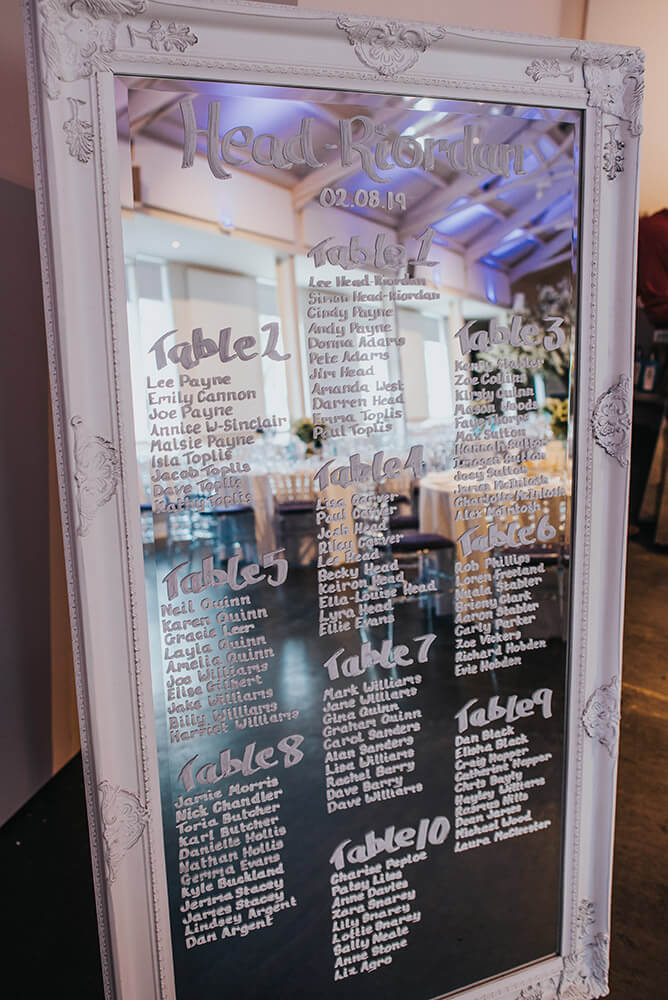 Head-Riordan
02.08.19
Table 1
Lee Head-Riordan
Simon Head-Riordan
Cindy Payne
Andy Payne
Donna Adams
Pete Adams
Jim Head
Amanda West
Darren Head
Emma Toplis
Paul Toplis
Table 2
Lee Payne
Emily Cannon
Joe Payne
Annice W-Sinclair
Maisie Payne
Isla Toplis
Jacob Toplis
Dave Toplis
Kathy Toplis
Table 3
Stabler
Zoe Collins
Kirsty Quinn
Mason Woods
Faye Thorpe
Max Sutton
Hannah Sutton
Imogen Sutton
Joey Sutton
McIntosh
Charlotte McIntosh
Alex McIntosh
Table 4
Lisa Carver
Paul Carver
Josh Head
Riley Carver
Les Head
Becky Head
Keiron Head
Ella-Louise Head
Lyra Head
Ellie Evans
Table 5
Neil Quinn
Karen Quinn
Gracie Leer
Layla Quinn
Amelia Quinn
Joe Williams
Elise Gilbert
Jake Williams
Billy Williams
Harriet Williams
Table 6
Rob Phillips
Loren Freeland
Nuala Stabler
Briony Clark
Aaron Stabler
Carly Parker
Zoe Vickers
Richard Hobden
Evie Hobden
Table 7
Mark Williams
Jane Williams
Gina Quinn
Graham Quinn
Carol Sanders
Alan Sanders
Lisa Williams
Rachel Barry
Dave Barry
Dave Williams
Table 8
Jamie Morris
Nick Chandler
Toria Butcher
Karl Butcher
Danielle Hollis
Nathan Hollis
Gemma Evans
Kyle Buckland
Jemma Stacey
James Stacey
Lindsey Argent
Dan Argent
Table 9
Dan Black
Elisha Black
Craig Hopper
Catherine Hopper
Chris Bayly
Hayley Williams
Rasmus Hills
Dean James
Michael Wood
Laura McChester
Table 10
Charise Peploe
Patsy Liles
Anne Davies
Zora Snarey
Lily Snarey
Lottie Snarey
Sally Neale
Anne Stone
Liz Agro